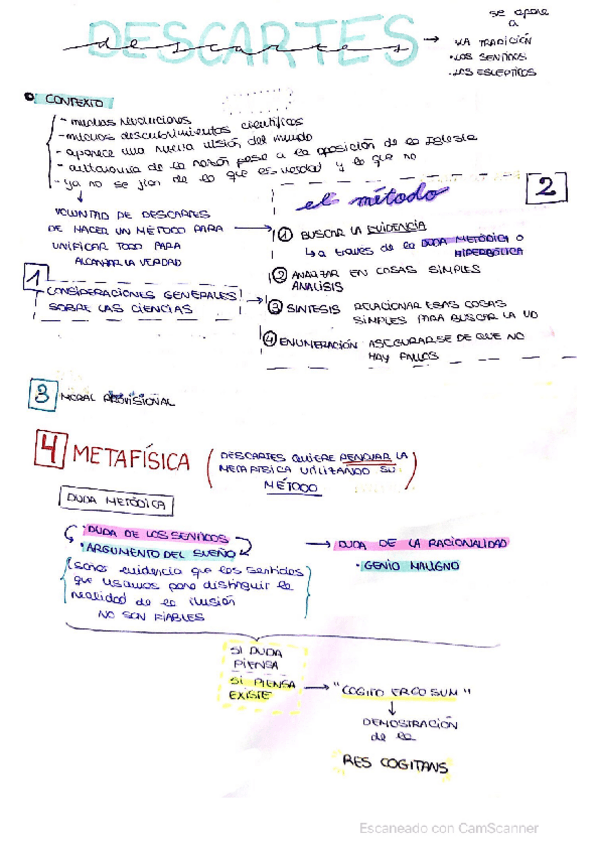 DESCARTES
descartes
→ se opone
a
LA TRADICIÓN
• LOS SENTIDOS
• LOS ESCEPTICOS
CONTEXTO
- muchas revoluciones
- muchos descubrimientos científicos
- aparece una nueva visión del mundo
- autonomía de la razón pese a la oposición de la Iglesia
- ya no se fían de lo que es verdad y lo que no
VOLUNTAD DE DESCARTES
DE HACER UN MÉTODO PARA
UNIFICAR TODO PARA
ALCANZAR LA VERDAD
1
CONSIDERACIONES GENERALES
SOBRE LAS CIENCIAS
el método
2
① BUSCAR LA EVIDENCIA
↳ a través de la DUDA METÓDICA O
HIPERBÓLICA
② ANALIZAR EN COSAS SIMPLES
ANALISIS
③ SINTESIS RELACIONAR ESAS COSAS
SIMPLES PARA BUSCAR LA VD
④ ENUMERACIÓN ASEGURARSE DE QUE NO
HAY FALLOS
3 MORAL PROVISIONAL
4 METAFÍSICA
(DESCARTES QUIERE RENOVAR LA
METAFISICA UTILIZANDO SU
MÉTODO)
DUDA METÓDICA
DUDA DE LOS SENTIDOS
• ARGUMENTO DEL SUEÑO
evidencia que los sentidos
que usamos para distinguir la
realidad de la ilusión
NO SON FIABLES
→ DUDA DE LA RACIONALIDAD
• GENIO MALIGNO
SI DUDA
PIENSA
SI PIENSA
EXISTE
→ "COGITO ERGO SUM"
DEMOSTRACIÓN
de la
RES COGITANS
Escaneado con CamScanner